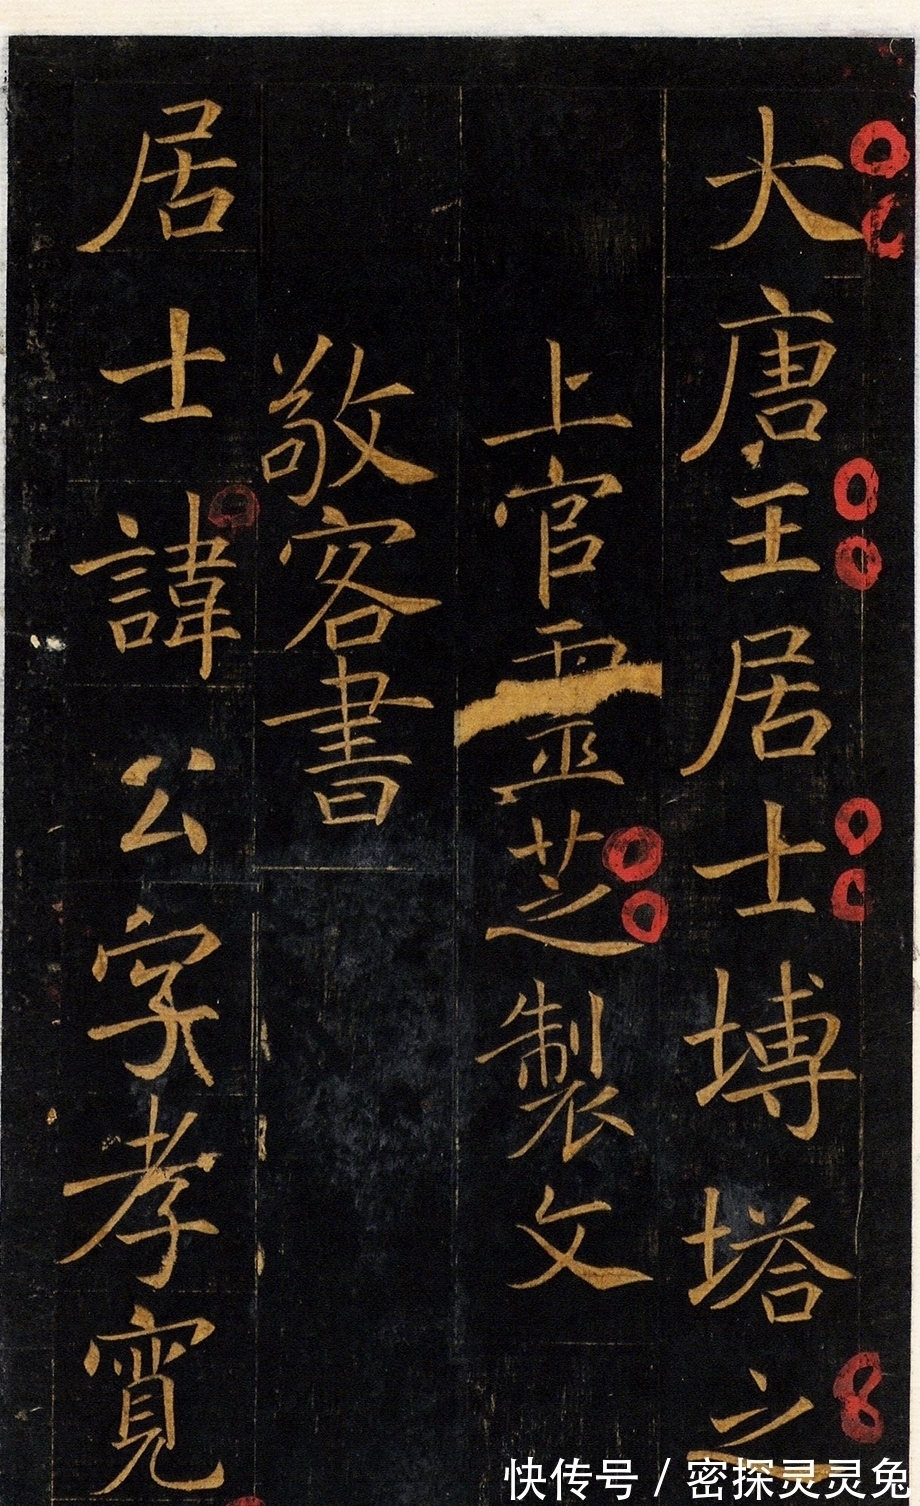 大唐王居士塼塔之
上官靈芝製文
敬客書
居士諱公字孝寬
快传号 / 密探灵灵兔